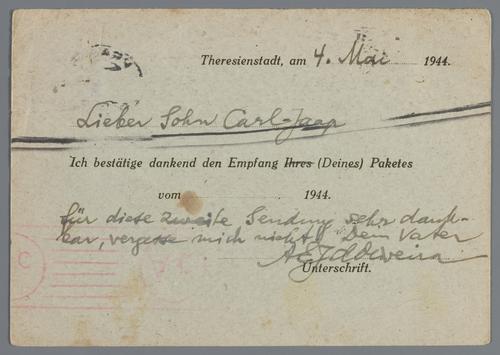 Theresienstadt, am 4. Mai 1944.
Lieber Sohn Carl-Jaap
Ich bestätige dankend den Empfang Ihres (Deines) Paketes
vom 1944.
für diese zweite Sendung sehr dank-
bar, vergesse mich nicht! Dein Vater
Unterschrift.